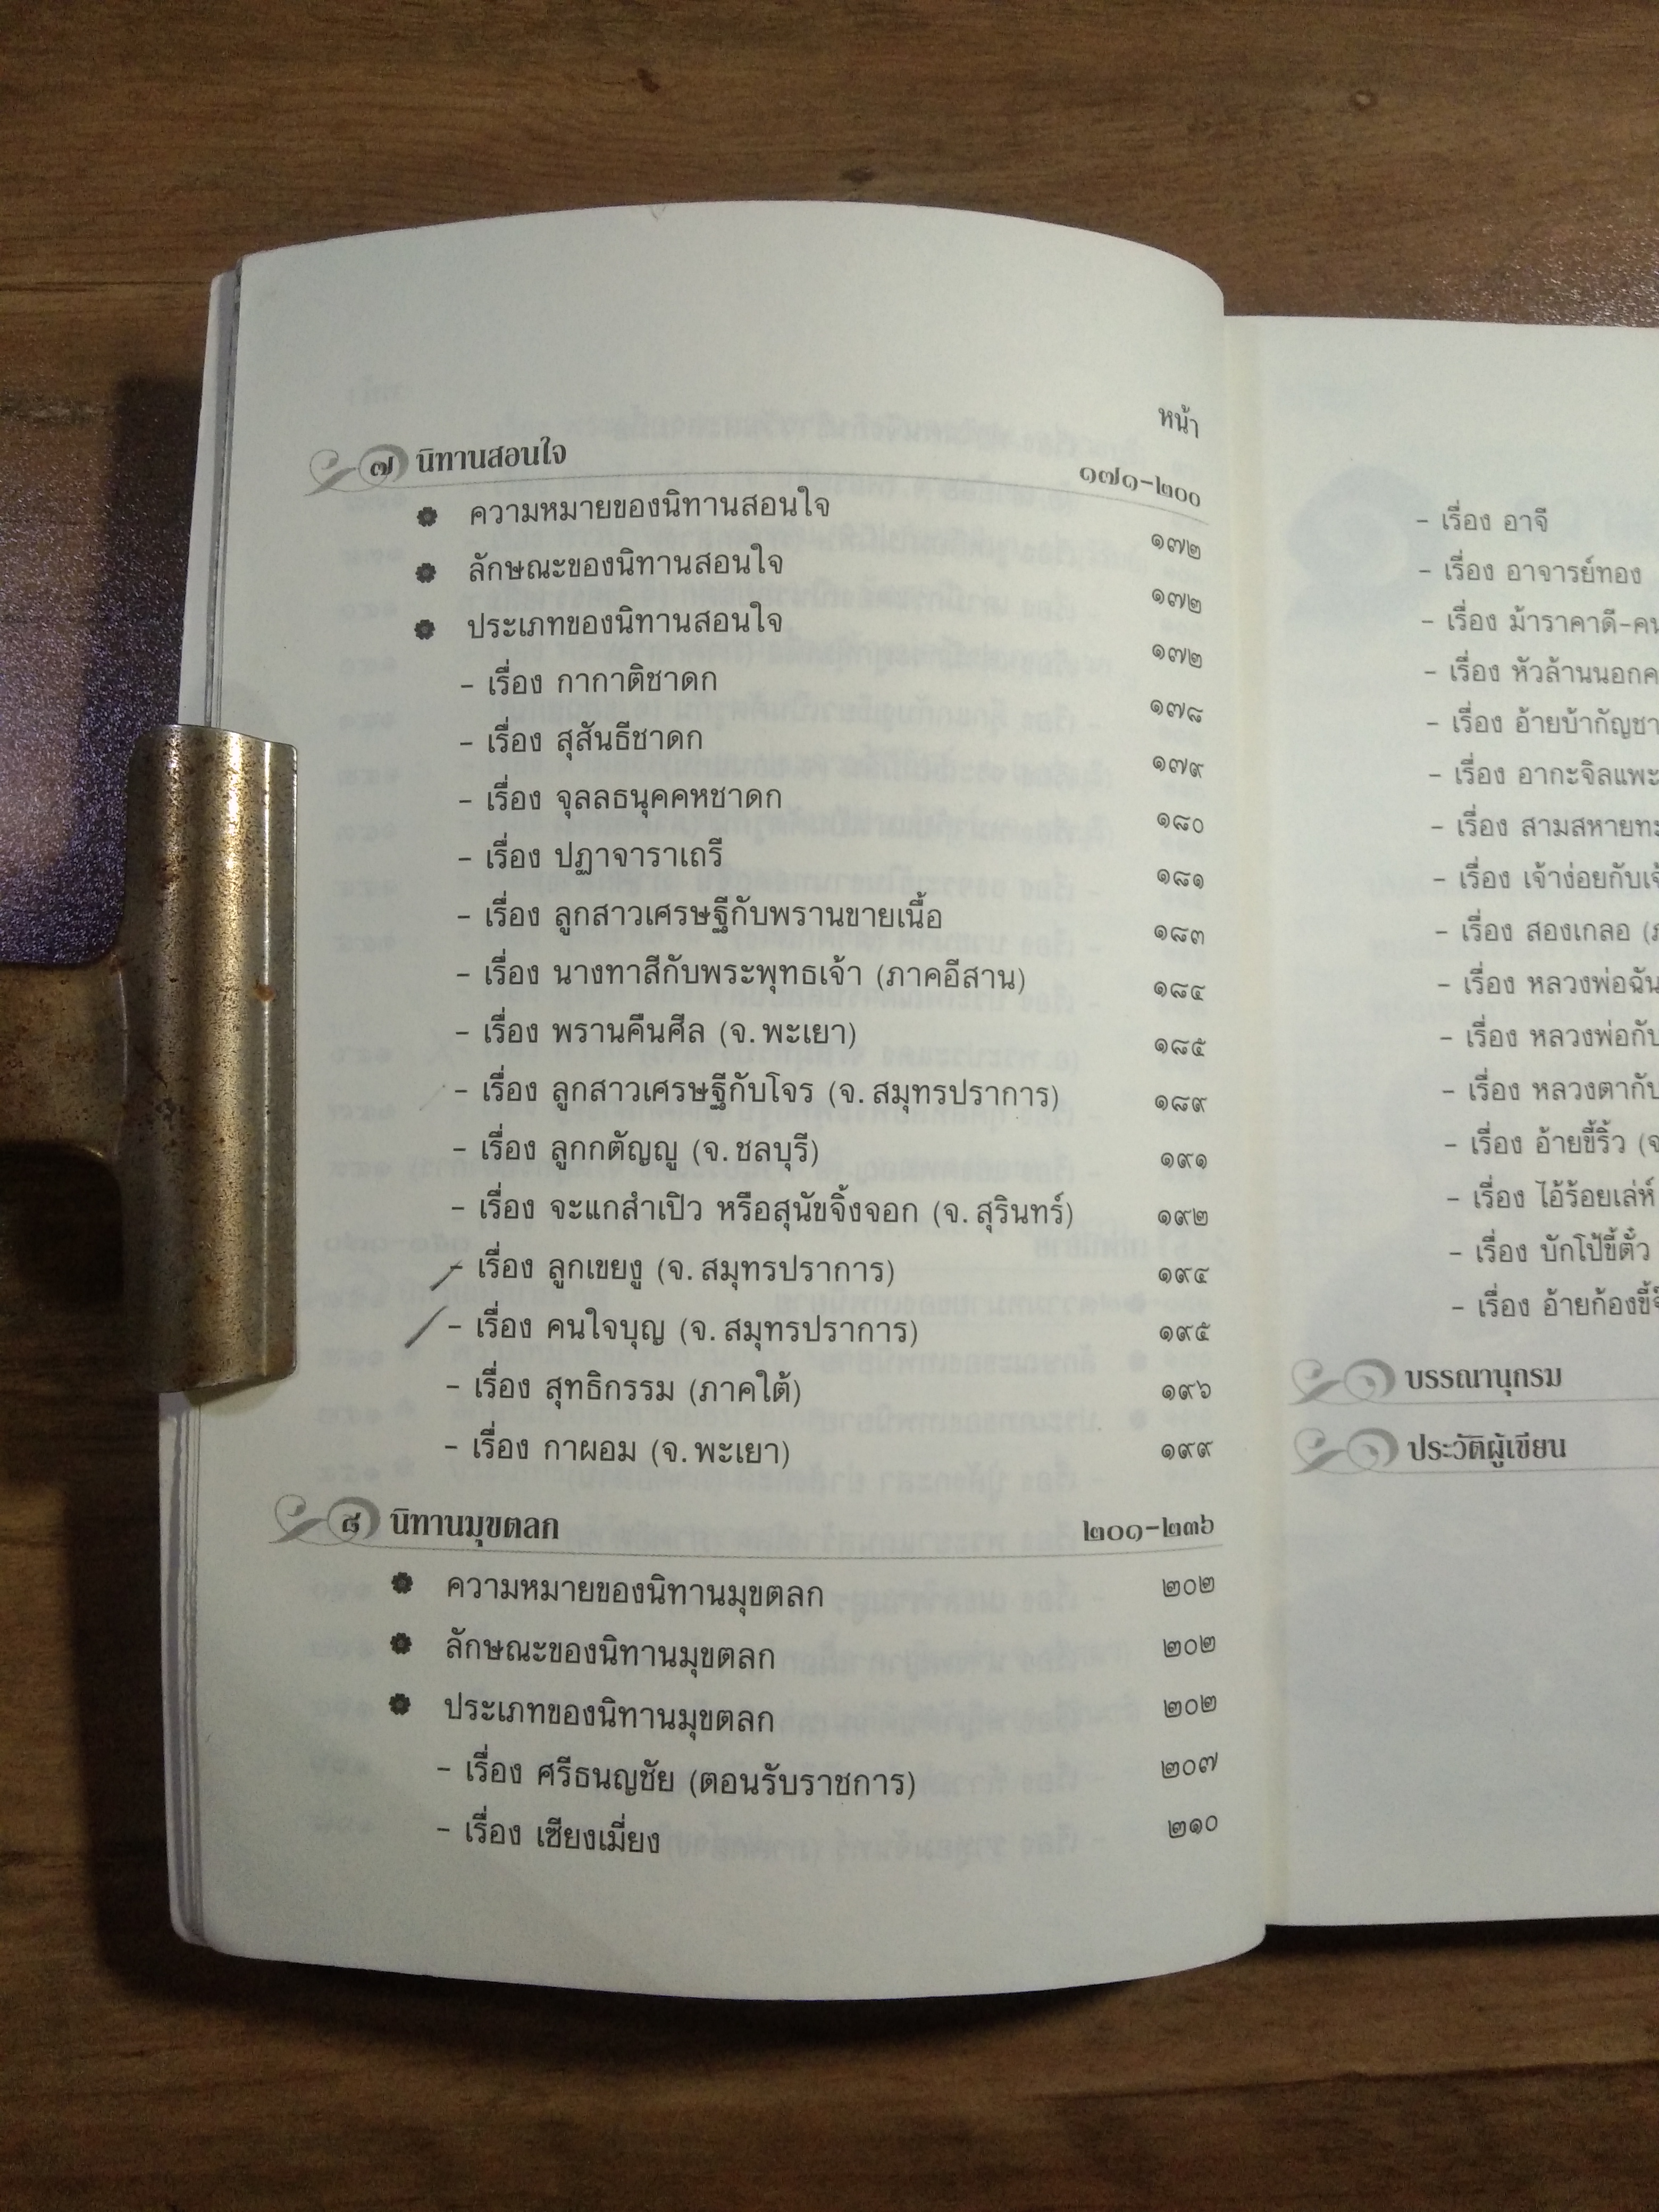 หน้า
๗ นิทานสอนใจ ๑๗๑-๒๐๐
ความหมายของนิทานสอนใจ ๑๗๒
ลักษณะของนิทานสอนใจ ๑๗๒
ประเภทของนิทานสอนใจ ๑๗๒
- เรื่อง กากาติชาดก ๑๗๘
- เรื่อง สุสันธีชาดก ๑๗๙
- เรื่อง จุลลธนุคคหชาดก ๑๘๐
- เรื่อง ปฏาจาราเถรี ๑๘๑
- เรื่อง ลูกสาวเศรษฐีกับพรานขายเนื้อ ๑๘๓
- เรื่อง นางทาสีกับพระพุทธเจ้า (ภาคอีสาน) ๑๘๔
- เรื่อง พรานคืนศีล (จ. พะเยา) ๑๘๕
- เรื่อง ลูกสาวเศรษฐีกับโจร (จ. สมุทรปราการ) ๑๘๙
- เรื่อง ลูกกตัญญู (จ. ชลบุรี) ๑๙๑
- เรื่อง จะแกสำเปิว หรือสุนัขจิ้งจอก (จ. สุรินทร์) ๑๙๒
- เรื่อง ลูกเขยงู (จ. สมุทรปราการ) ๑๙๔
- เรื่อง คนใจบุญ (จ. สมุทรปราการ) ๑๙๕
- เรื่อง สุทธิกรรม (ภาคใต้) ๑๙๖
- เรื่อง กาผอม (จ. พะเยา) ๑๙๙
๘ นิทานมุขตลก ๒๐๑-๒๓๖
ความหมายของนิทานมุขตลก ๒๐๒
ลักษณะของนิทานมุขตลก ๒๐๒
ประเภทของนิทานมุขตลก ๒๐๒
- เรื่อง ศรีธนญชัย (ตอนรับราชการ) ๒๐๗
- เรื่อง เซียงเมี่ยง ๒๑๐
- เรื่อง อาจี
- เรื่อง อาจารย์ทอง
- เรื่อง ม้าราคาดี-คน
- เรื่อง หัวล้านนอกค
- เรื่อง อ้ายบ้ากัญชา
- เรื่อง อากะจิลแพะ
- เรื่อง สามสหายทะ
- เรื่อง เจ้าง่อยกับเจ้
- เรื่อง สองเกลอ (ภ
- เรื่อง หลวงพ่อฉัน
- เรื่อง หลวงพ่อกับ
- เรื่อง หลวงตากับ
- เรื่อง อ้ายขี้ริ้ว (จ
- เรื่อง ไอ้ร้อยเล่ห์
- เรื่อง บักโป้ขี้ตั๋ว
- เรื่อง อ้ายก้องขี้จ๊
บรรณานุกรม
ประวัติผู้เขียน